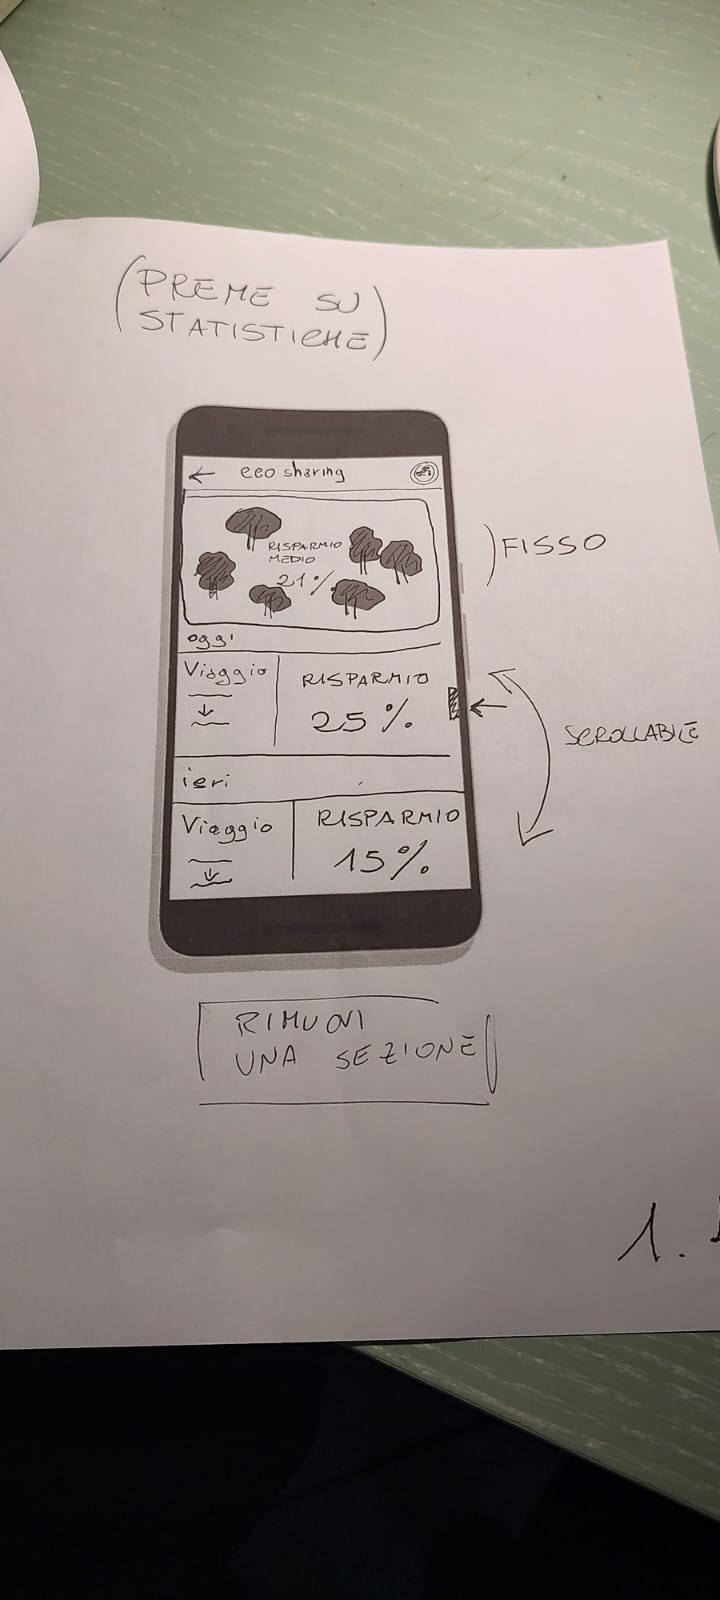 (PREME SU
STATISTICHE)
← eco sharing
RISPARMIO
MEDIO
21%
FISSO
oggi
Viaggio
RISPARMIO
25%
SCROLLABILE
ieri
Viaggio
RISPARMIO
15%
RIMUOVI
UNA SEZIONE
1.